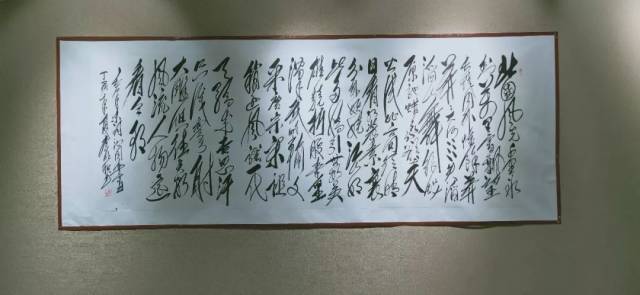 北国风光千里冰
封万里雪飘望
长城内外惟余莽
莽大河上下顿失滔
滔山舞银蛇
原驰蜡象欲与天
公试比高须晴
日看红装素裹
分外妖娆江山如
此多娇引无数英
雄竞折腰惜秦皇
汉武略输文
采唐宗宋祖
稍逊风骚一代
天骄成吉思汗
只识弯弓射
大雕俱往矣数
风流人物还
看今朝